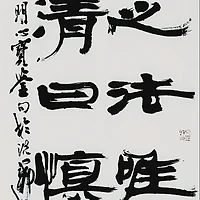 之法唯
清曰慎
明心寶鑒句於